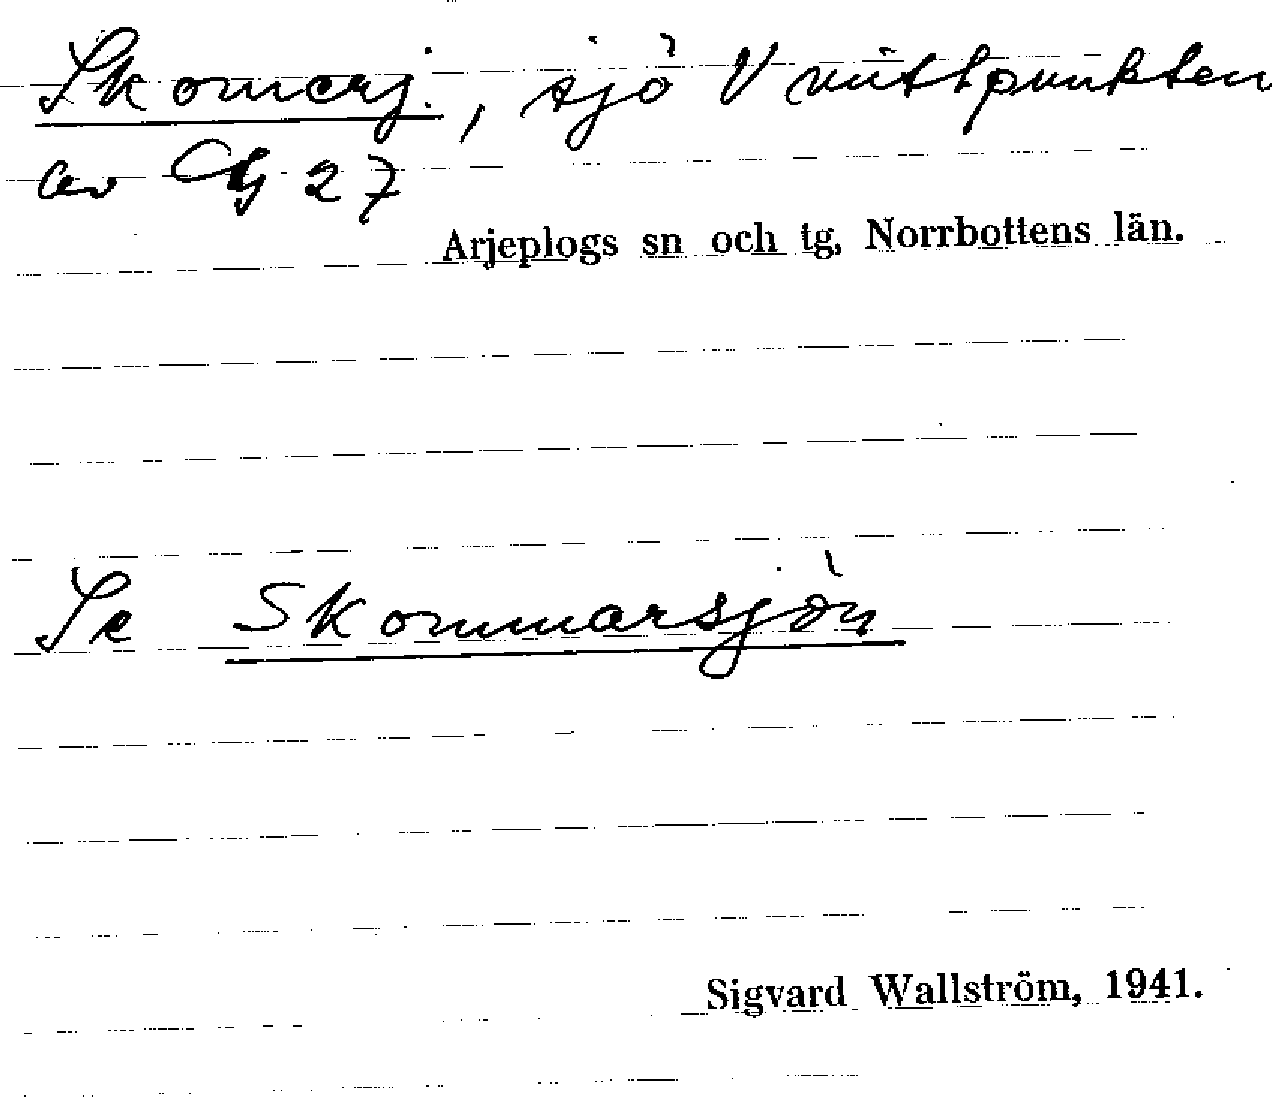 Skomerj., sjö V mittpunkten
av Cg 27
Arjeplogs sn och tg, Norrbottens län.
Se Skommarsjön
Sigvard Wallström, 1941.